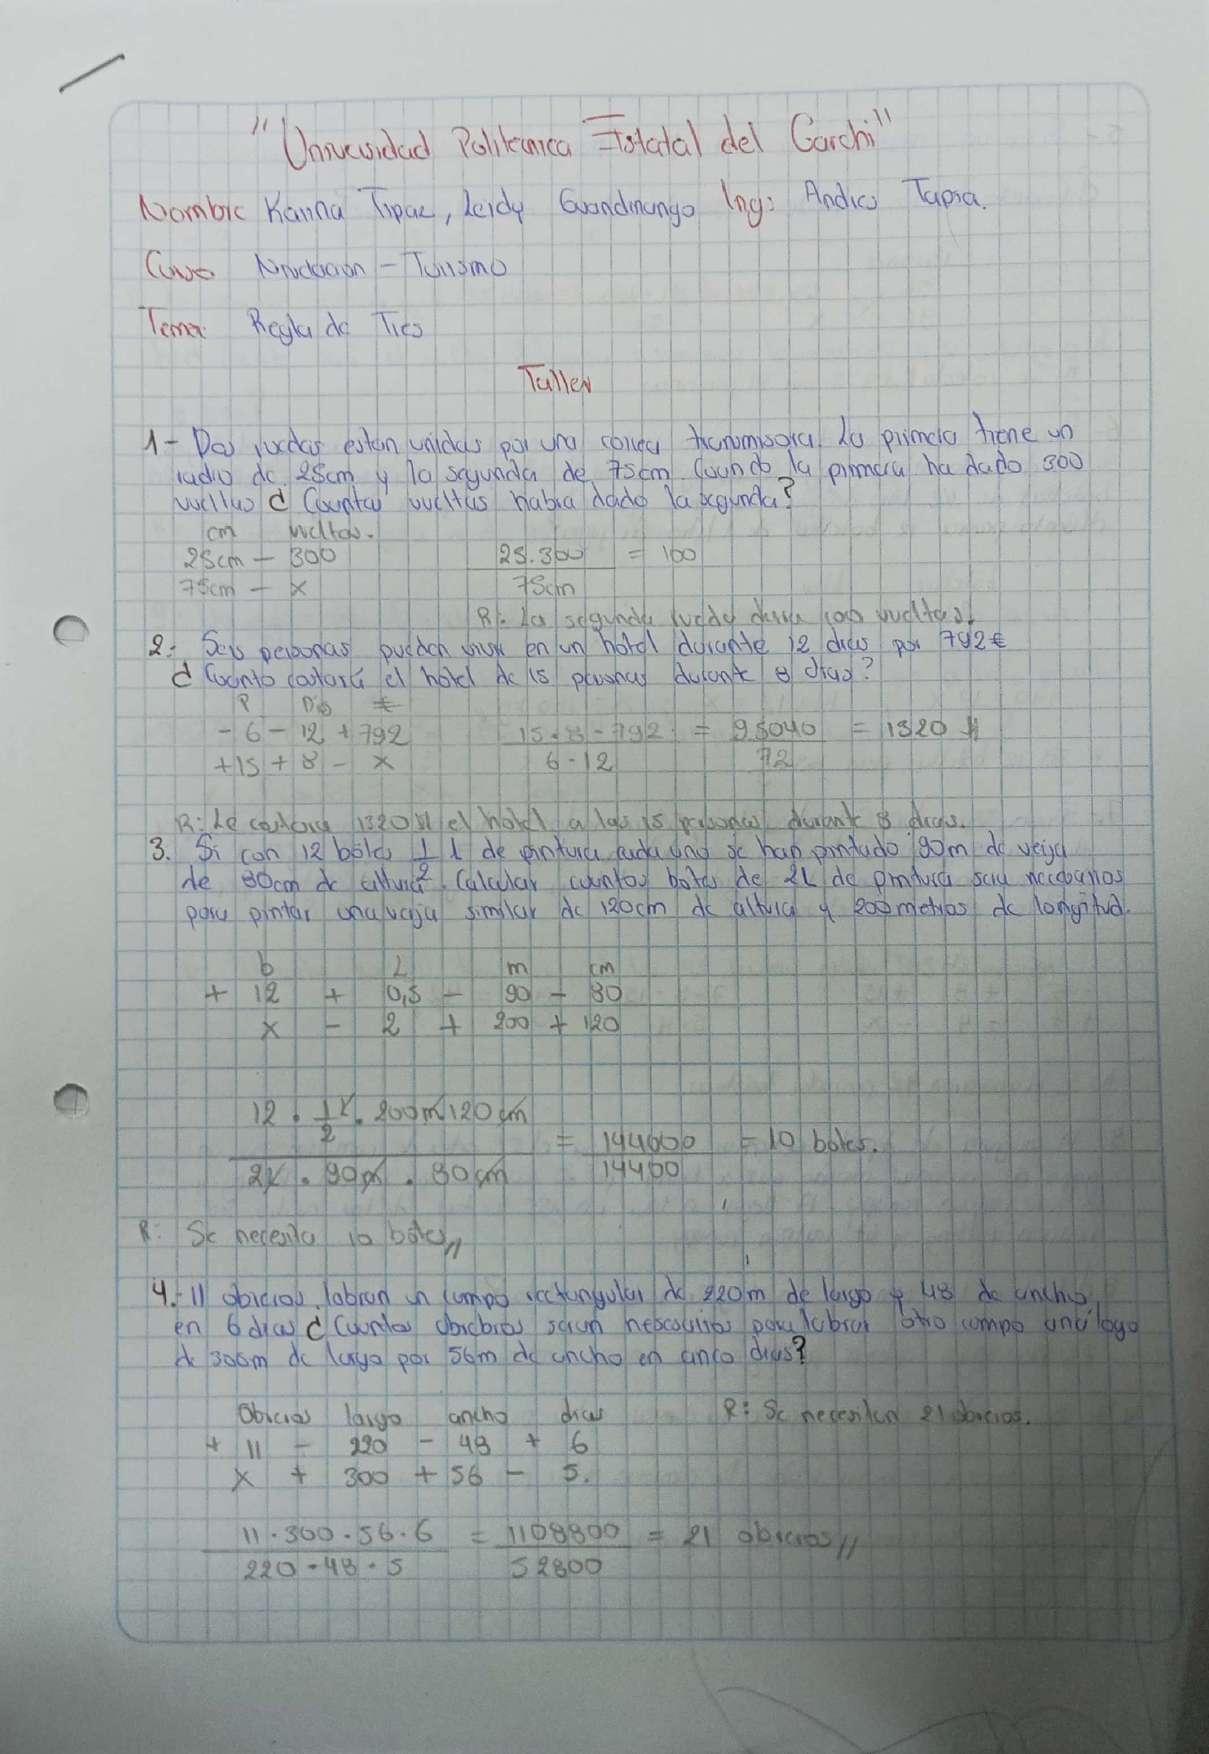 "Universidad Politecnica Estatal del Carchi"
Nombre Kanna Tipaz, Leidy Guandinango Ing: Andres Tapia.
Curso Nivelacion - Turismo
Tema Regla de Tres
Taller
1- Dos ruedas estan unidas por una correa transmisora. La primera tiene un
radio de 25cm y la segunda de 75cm. Cuando la primera ha dado 300
vueltas ¿ Cuantas vueltas habra dado la segunda?
cm vueltas.
25cm - 300
75cm - x
25.300 / 75cm = 100
R: La segunda rueda daria 100 vueltas.
2.- Seis personas pueden vivir en un hotel durante 12 dias por 792€
¿ Cuanto costará el hotel de 15 personas durante 8 dias?
P D €
- 6 - 12 + 792
+ 15 + 8 - x
15.8-792 / 6-12 = 95040 / 72 = 1320 //
R: Le costara 1320 el hotel a las 15 personas durante 8 dias.
3. Si con 12 botes 1/2 L de pintura cada uno se han pintado 90m de verja
de 80cm de altura. Calcular cuantos botes de 2L de pintura seran necesarios
para pintar una verja similar de 120cm de altura y 200 metros de longitud.
b L m cm
+ 12 + 0,5 - 90 - 80
x - 2 + 200 + 120
12 . 1/2 L. 200m 120cm / 2L . 90m . 80cm = 144000 / 14400 = 10 botes.
R: Se necesita 10 botes //
4.- 11 obreros labran un campo rectangular de 220m de largo y 48 de ancho
en 6 dias ¿ Cuantos obreros seran necesarios para labrar otro campo analogo
de 300m de largo por 56m de ancho en cinco dias?
Obreros largo ancho dias
+ 11 - 220 - 48 + 6
x + 300 + 56 - 5.
R: Se necesitan 21 obreros.
11.300.56.6 / 220-48.5 = 1108800 / 52800 = 21 obreros //